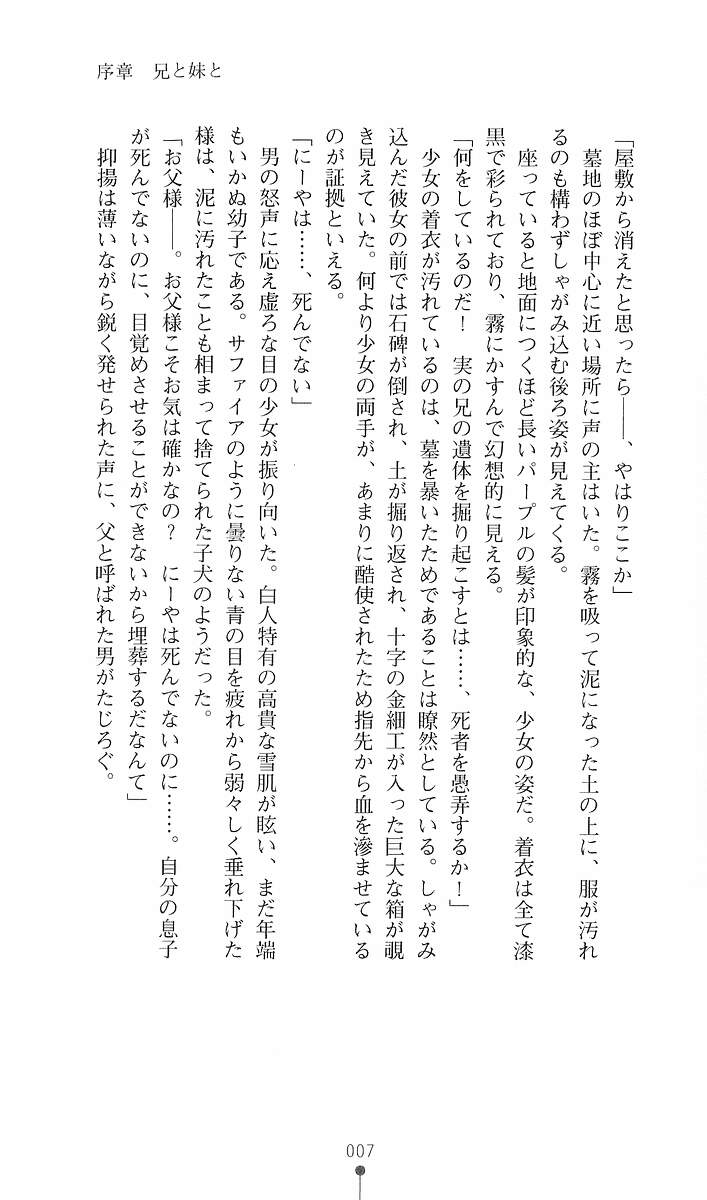 序章　兄と妹と
「屋敷から消えたと思ったら――、やはりここか」
　墓地のほぼ中心に近い場所に声の主はいた。霧を吸って泥になった土の上に、服が汚れ
るのも構わずしゃがみ込む後ろ姿が見えてくる。
　座っていると地面につくほど長いパープルの髪が印象的な、少女の姿だ。着衣は全て漆
黒で彩られており、霧にかすんで幻想的に見える。
「何をしているのだ！　実の兄の遺体を掘り起こすとは……、死者を愚弄するか！」
　少女の着衣が汚れているのは、墓を暴いたためであることは瞭然としている。しゃがみ
込んだ彼女の前では石碑が倒され、土が掘り返され、十字の金細工が入った巨大な箱が覗
き見えていた。何より少女の両手が、あまりに酷使されたため指先から血を滲ませている
のが証拠といえる。
「にーやは……、死んでない」
　男の怒声に応え虚ろな目の少女が振り向いた。白人特有の高貴な雪肌が眩い、まだ年端
もいかぬ幼子である。サファイアのように曇りない青の目を疲れから弱々しく垂れ下げた
様は、泥に汚れたことも相まって捨てられた子犬のようだった。
「お父様――。お父様こそお気は確かなの？　にーやは死んでないのに……。自分の息子
が死んでないのに、目覚めさせることができないから埋葬するだなんて」
　抑揚は薄いながら鋭く発せられた声に、父と呼ばれた男がたじろぐ。
007